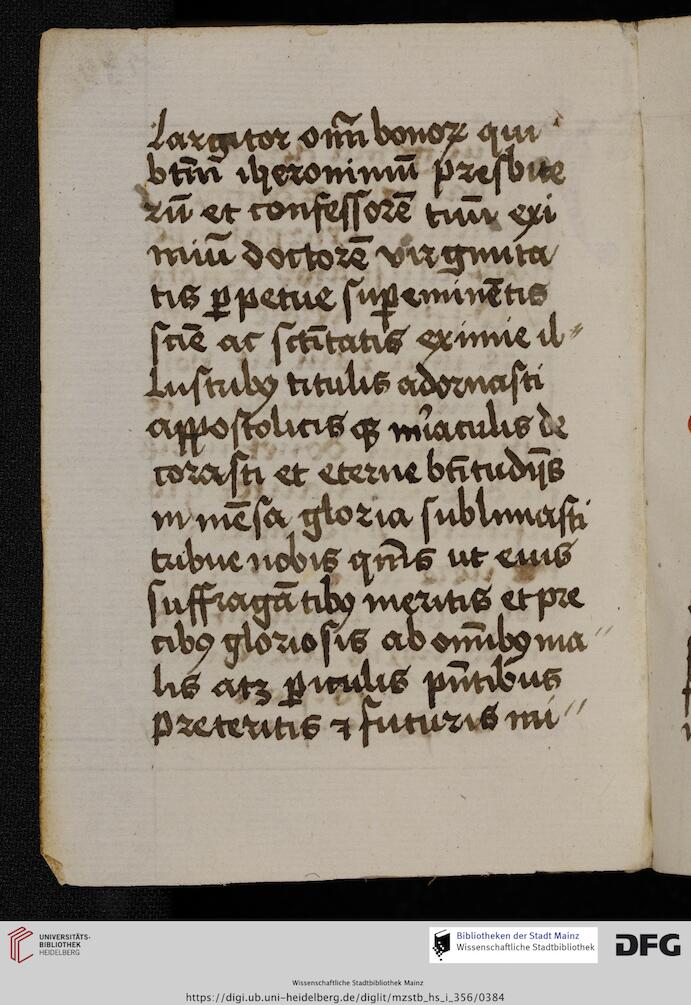 Largitor om̅n̅ bonoꝝ qui
bt̅m̅ iheronimu̅ presbite
ru̅ et confessore̅ tuu̅ exi
miu̅ doctore̅ virginita
tis ꝑpetue suꝑemine̅tis
scie̅ ac sc̅titatis eximie il〃
Lustribꝰ titulis adornasti
appostolicis qꝫ mi̅aculis de
corasti et eterne bt̅itudi̅s
in me̅sa gloria sublimasti
tribue nobis qm̅s ut eius
suffraga̅tibꝰ meritis et pre
cibꝰ gloriosis ab om̅ibꝰ ma〃
lis atꝫ ꝑiculis pn̅tibus
preteritis ⁊ futuris mi〃
UNIVERSITÄTS-
BIBLIOTHEK
HEIDELBERG
Bibliotheken der Stadt Mainz
Wissenschaftliche Stadtbibliothek
DFG
Wissenschaftliche Stadtbibliothek Mainz
https://digi.ub.uni-heidelberg.de/diglit/mzstb_hs_i_356/0384